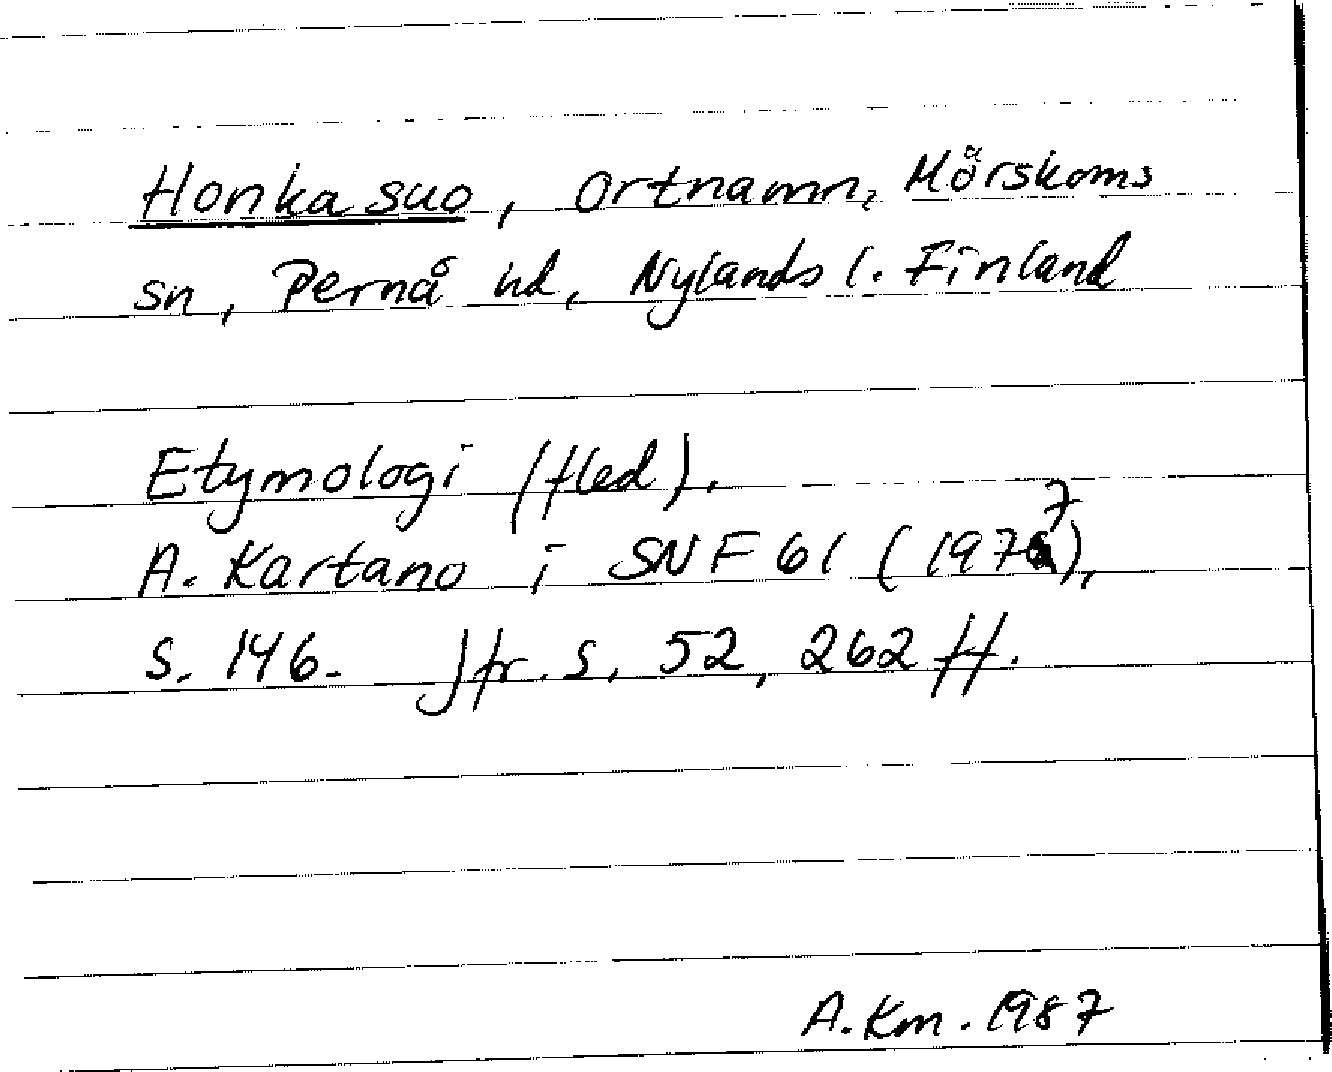 Honkasuo, Ortnamn, Mörskoms
sn, Pernå hd, Nylands l. Finland
Etymologi (fled).
A. Kartano i SNF 61 (1977),
s. 146. Jfr. s. 52, 262 ff.
A. Km. 1987